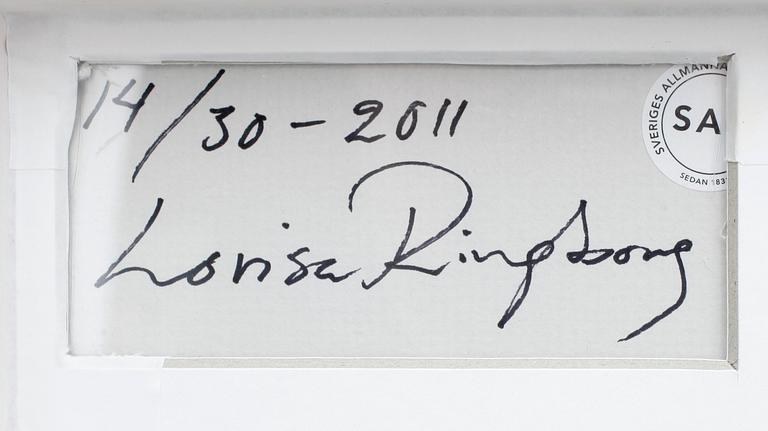 14/30 - 2011
Lovisa Ringborg
SVERIGES ALLMÄNNA
SA
SEDAN 183